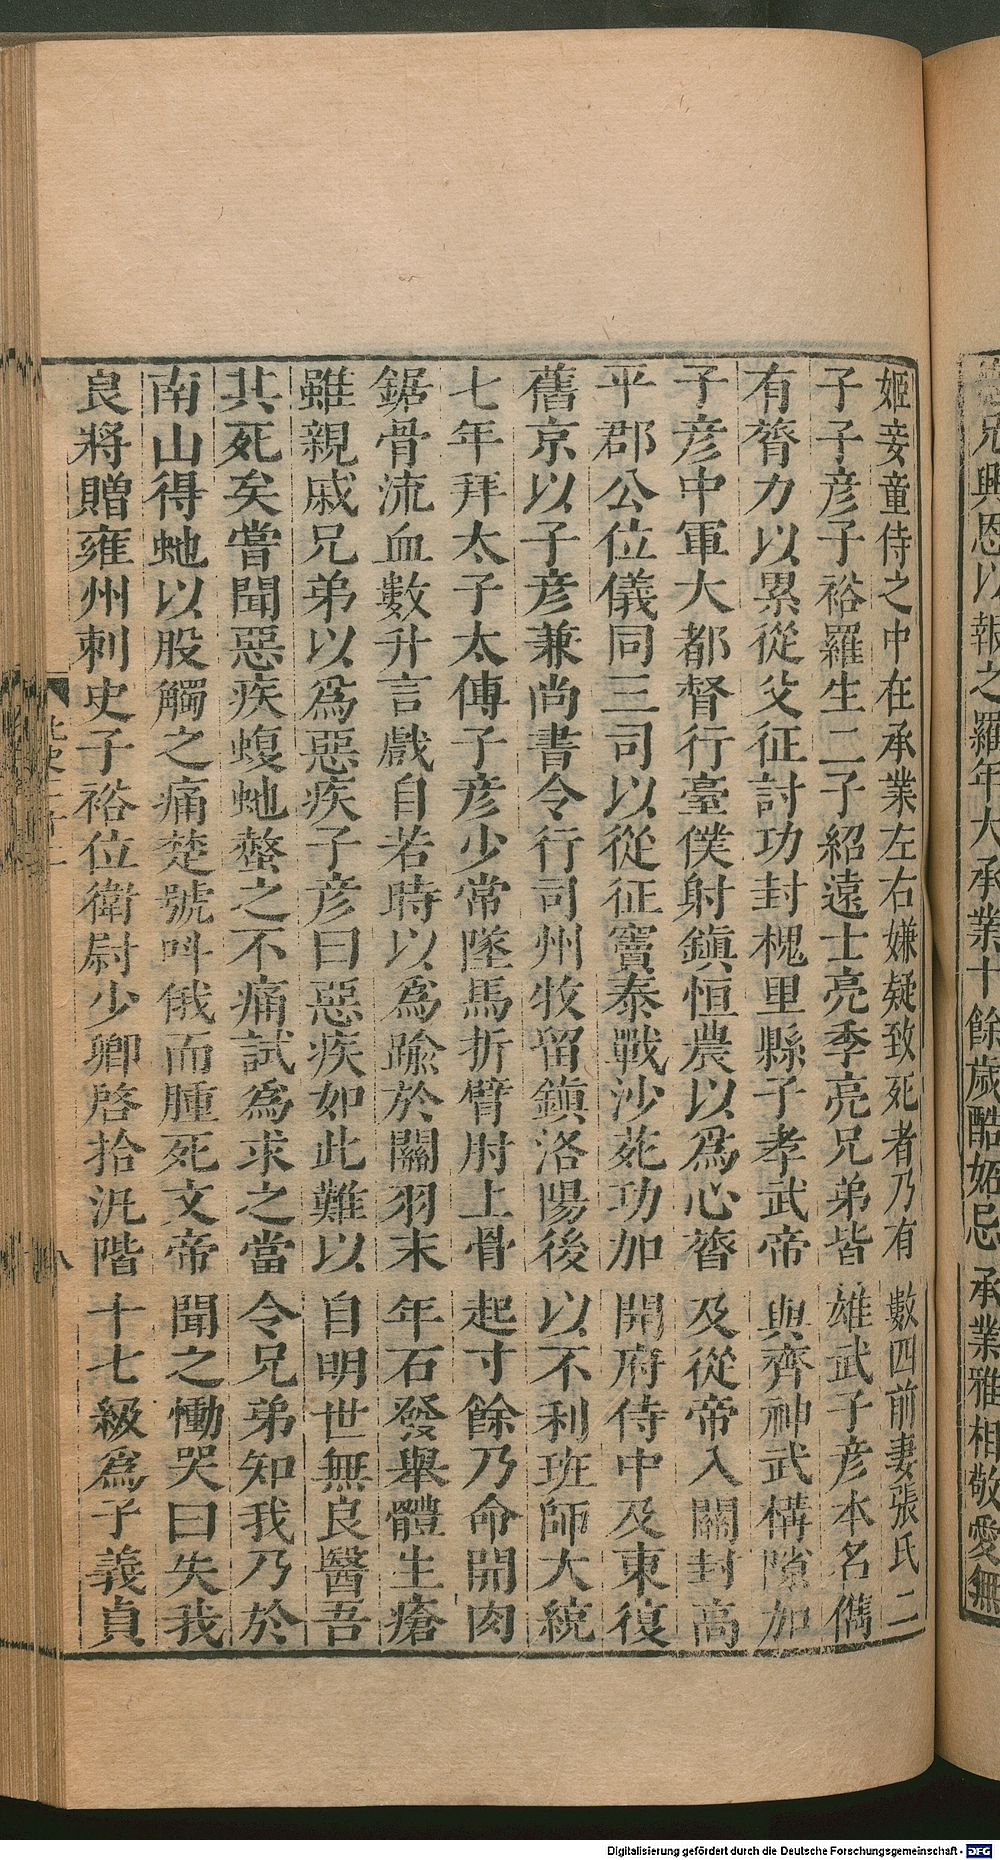 兄興恩以報之羅年大承業十餘歲酷妬忌承業雅相敬愛無
姬妾童侍之中在承業左右嫌疑致死者乃有數四前妻張氏二
子子彥子裕羅生二子紹遠士亮季亮兄弟皆雄武子彥本名儁
有膂力以累從父征討功封槐里縣子孝武帝與齊神武構隙加
子彥中軍大都督行臺僕射鎮恒農以爲心膂及從帝入關封高
平郡公位儀同三司以從征竇泰戰沙苑功加開府侍中及東復
舊京以子彥兼尚書令行司州牧留鎮洛陽後以不利班師大統
七年拜太子太傳子彥少常墜馬折臂肘上骨起寸餘乃命開肉
鋸骨流血數升言戲自若時以爲踰於關羽末年石發舉體生瘡
雖親戚兄弟以爲惡疾子彥曰惡疾如此難以自明世無良醫吾
其死矣嘗聞惡疾蝮虵螫之不痛試爲求之當令兄弟知我乃於
南山得虵以股觸之痛楚號呌俄而腫死文帝聞之慟哭曰失我
良將贈雍州刺史子裕位衛尉少卿啓拾汎階十七級爲子義貞
北史二十二
八
Digitalisierung gefördert durch die Deutsche Forschungsgemeinschaft - DFG